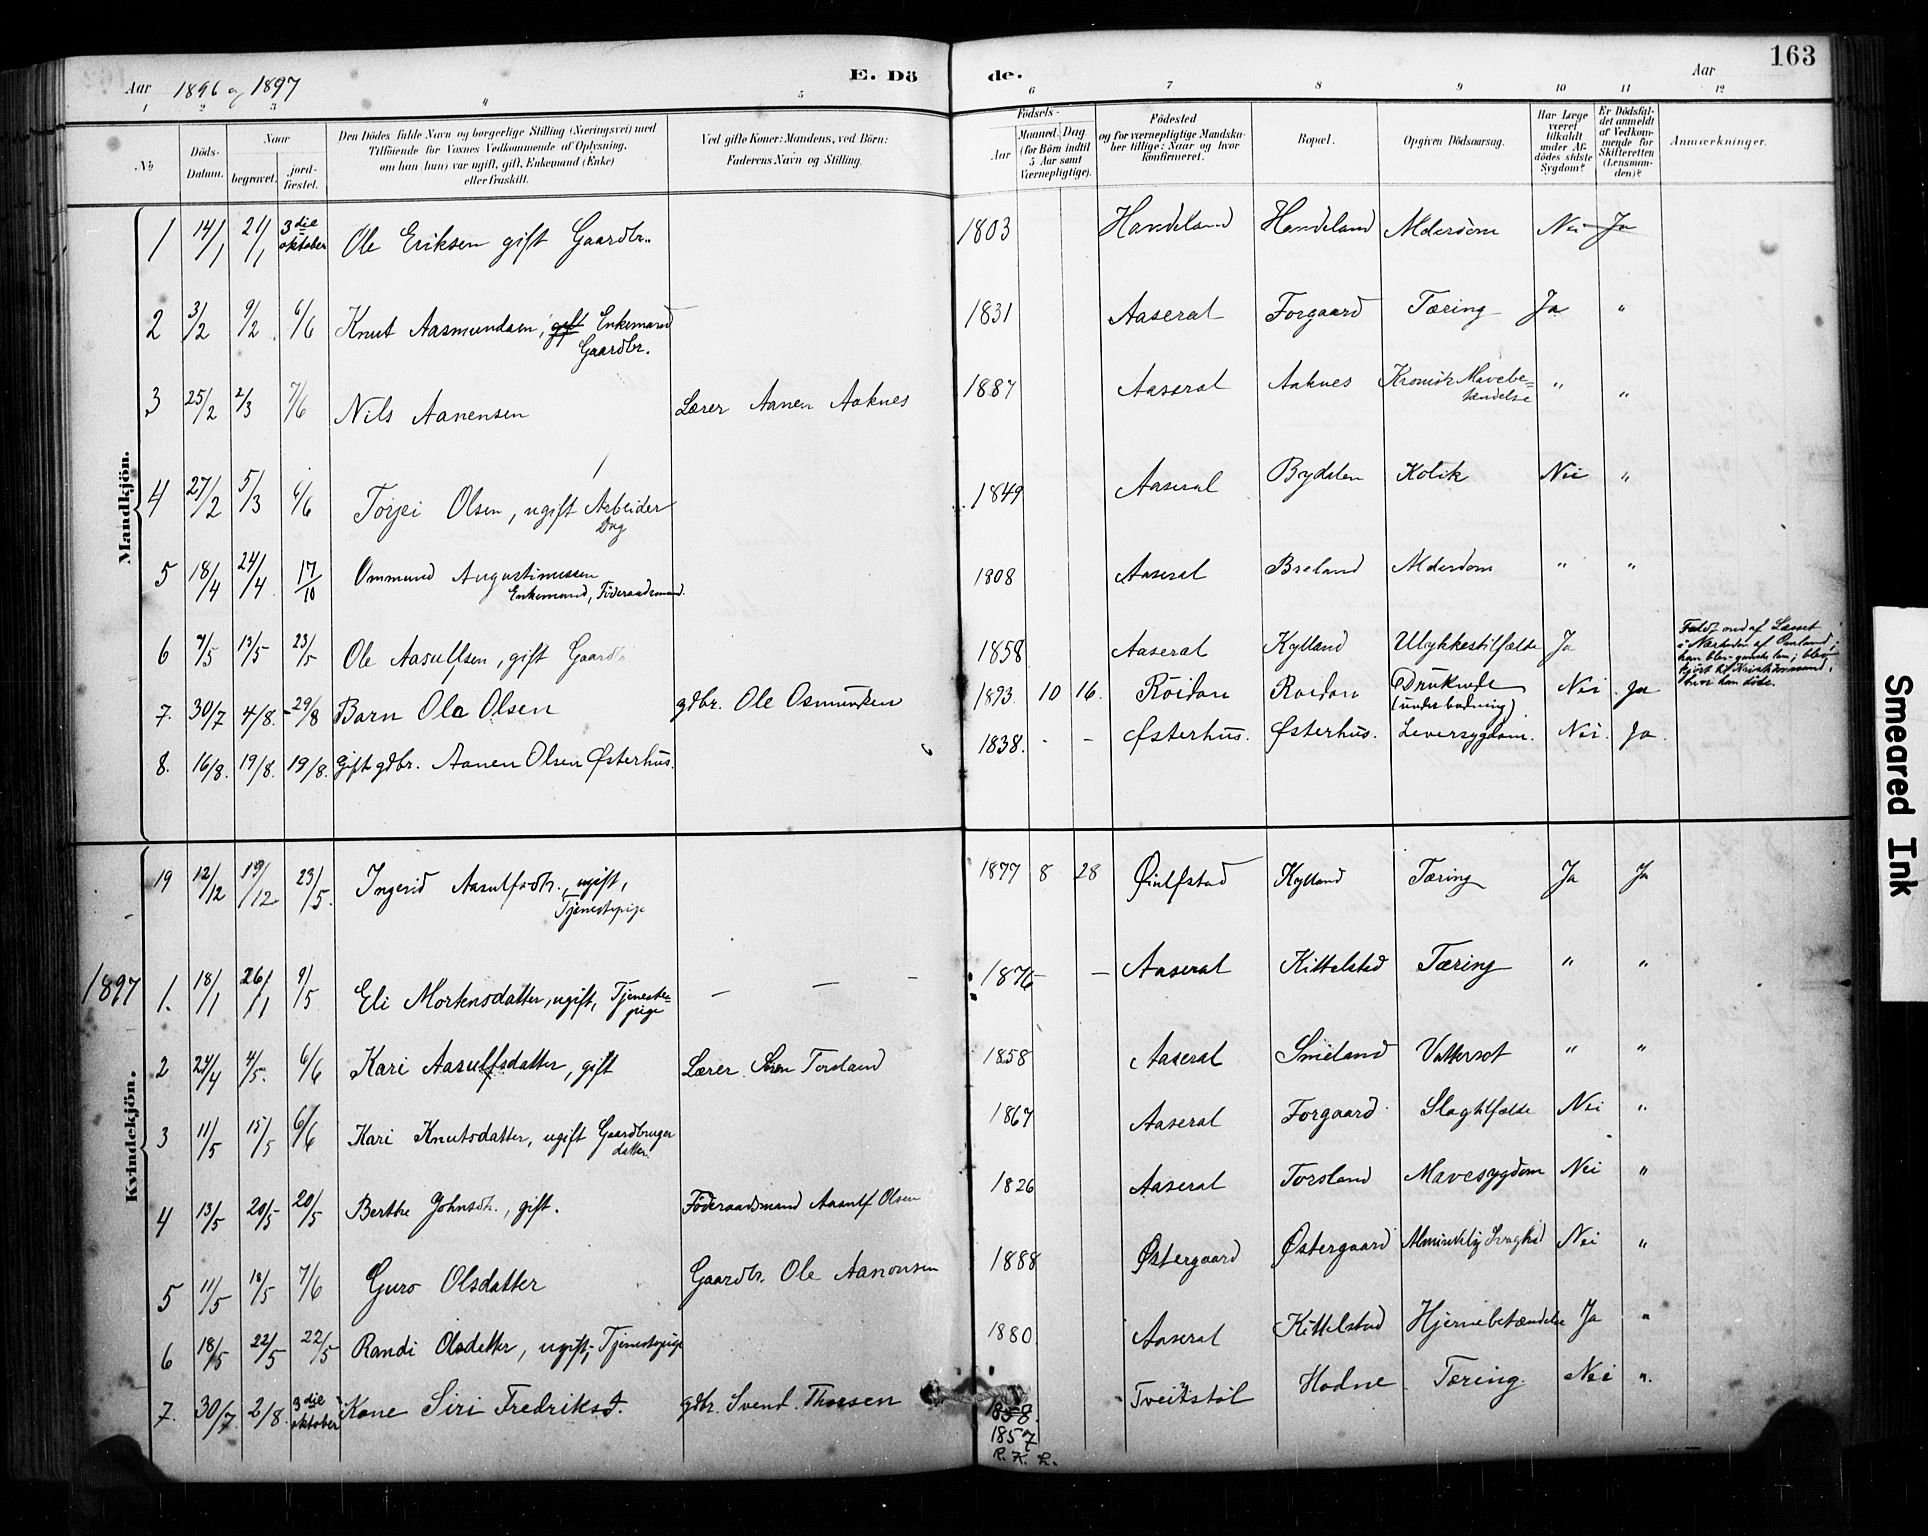 163
Aar 1896 og 1897
E. Dö de.
Aar
1 2 3 4 5 6 7 8 9 10 11 12
No
Döds-Datum.
Naar
begravet.
jord-fæstet.
Den Dödes fulde Navn og borgerlige Stilling (Næringsvei) med
Tilföiende for Voxnes Vedkommende af Oplysning,
om han (hun) var ugift, gift, Enkemand (Enke)
eller fraskilt.
Ved gifte Koner: Mandens, ved Börn:
Faderens Navn og Stilling.
Födsels-
Aar
Maaned. Dag.
(for Börn indtil 5 Aar samt Værnepligtige).
Födested
og for værnepligtige Mandska-
ber tillige: Naar og hvor
konfirmeret.
Bopæl.
Opgiven Dödsaarsag.
Har Læge været tilkaldt under Af-dödes sidste Sygdom?
Er Dödsfal-det anmeldt af Vedkom-mende for Skifteretten (Lensman-den)?
Anmærkninger.
Mandkjön.
1 14/1 21/1 3die oktober Ole Eriksen gift Gaardbr. 1803 Handeland Handeland Alderdom Nei Ja
2 3/2 9/2 6/6 Knut Aasmundsen, gift Enkemand 1831 Aaseral Forgaard Tæring Ja "
Gaardbr.
3 25/2 2/3 7/6 Nils Aanensen Lærer Aanen Aaknes 1887 Aaseral Aaknes Kronisk Mavebe= " "
tændelse
4 27/2 5/3 6/6 Torjei Olsen, ugift Arbeider 1849 Aaseral Bydalen Kolik Nei "
Dag
5 18/4 24/4 17/10 Ommund Augustinussen 1808 Aaseral Breland Alderdom " "
Enkemand, Föderaadsmand.
6 7/5 13/5 23/5 Ole Aasulfsen, gift Gaardb. 1858 Aaseral Kylland Ulykkestilfælde Ja
Faldt ned af Læsset
i Nærheden af
han blev ganske lam; blev
kjørt til Kristianssand,
hvor han döde.
7. 30/7 4/8. 29/8 Barn Ola Olsen gdbr. Ole Osmundsen 1893 10 16. Röidan Roidan Druknede Nei. Ja
(under badning)
8. 16/8. 19/8. 19/8. gift gdbr. Aanen Olsen Østerhus. 1838. - - Østerhus. Østerhus. Leversygdom. Nei. Ja.
Kvindekjön.
19 12/12 19/12 23/5. Ingerid Aasulfsdtr., ugift, 1877 8 28 Øiulfstad Kylland Tæring Ja Ja
Tjenestepige
1897 1. 18/1 26/1 9/5 Eli Mortensdatter, ugift, Tjeneste= — — 1876 — Aaseral Kittelstad Tæring " "
pige
2 24/4 4/5. 6/6 Kari Aasulfsdatter, gift Lærer Sören Torsland 1858 Aaseral Smeland Vattersot " "
3 11/5 15/5 6/6 Kari Knutsdatter, ugift Gaardbruger 1867 Aaseral Forgaard Slagtilfælde Nei "
datter
4 13/5 20/5 20/5 Berthe Johnsdtr., gift. Föderaadsmand Aasulf Olsen 1826 Aaseral Torsland Mavesygdom Nei "
5 11/5 18/5 7/6 Guro Olsdatter Gaardbr. Ole Aanonsen 1888 Østergaard Østergaard Almindelig Svaghed Nei "
6 18/5 22/5 22/5 Randi Olsdatter, ugift, Tjenestepige 1880 Aaseral Kittelstad Hjernebetændelse Ja "
7. 30/7 2/8. 3die oktober Kone Siri Fredriksd. gdbr. Svend Thorsen 1858. Tveitstöl Hodne Tæring. Nei "
1857
R. K. L.
Smeared Ink